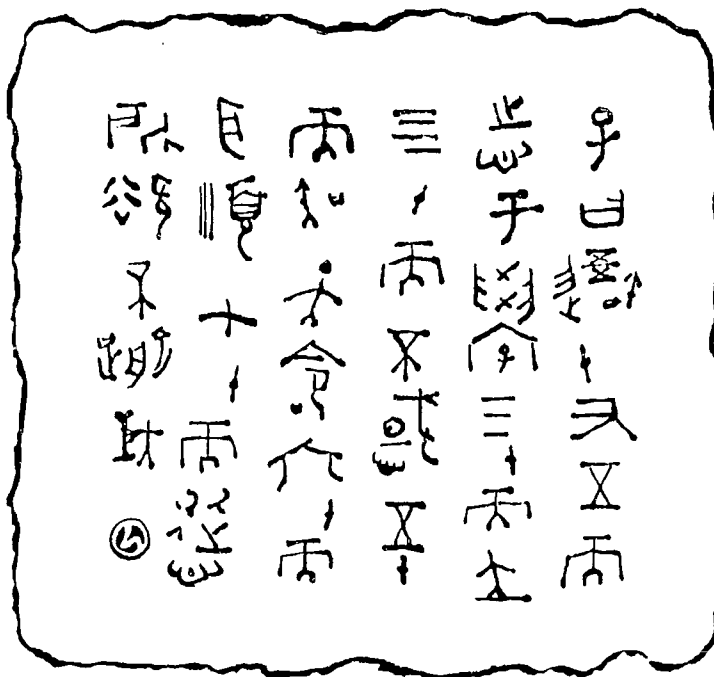 子曰吾十又五而
志于學三十而立
四十而不惑五十
而知天命六十而
耳順七十而從心
所欲不逾矩